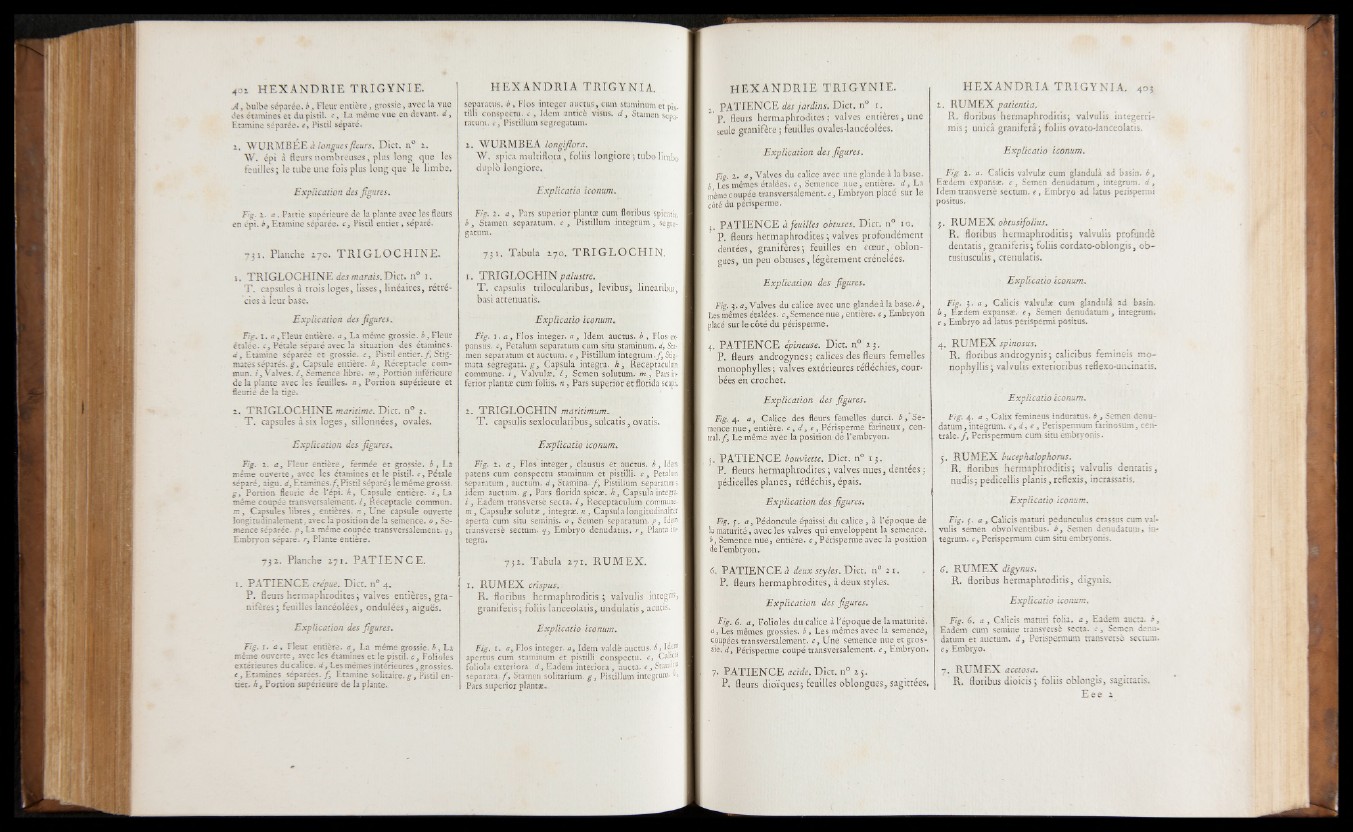 402 HEXANDRIE TRIGYNIE.
A, bulbe séparée. b, Fleur entière, grossie, avec la vue
des étamines et du pistil. c, La même vue en devant. d,
Etamine séparée. e, Pistil séparé.
2. WURMBÉE à longues fleurs. Dict. n° 2.
W. épi à fleurs nombreuses, plus long que les
feuilles; le tube une fois plus long que le limbe.
Explication des figures.
Fig. 2. a. Partie supérieure de la plante avec les fleurs
en épi. b, Etamine séparée. c, Pistil entier, séparé.
731. Planche 270. TRIGLOCHINE.
1. TRIGLOCHINE des marais. Dict. n° 1.
T. capsules à trois loges, lisses, linéaires, rétré-
cies à leur base.
Explication des figures.
Fig. 1. a, Fleur entière. a, La même grossie. b, Fleur
étalée. c, Pétale séparé avec la situation des étamines.
d, Etamine séparée et grossie. e, Pistil entier. f, Stig-
mates séparés. g, Capsule entière. h, Réceptacle com-
mun. i, Valves. l, Semence libre. m, Portion inférieure
de la plante avec les feuilles. n, Portion supérieure et
fleurie de la tige.
2. TRIGLOCHINE maritime. Dict. n° 3.
T. capsules à six loges, sillonnées, ovales.
Explication des figures.
Fig. 2. a, Fleur entière, fermée et grossie. b, La
même ouverte, avec les étamines et le pistil. c, Pétale
séparé, aigu. d, Etamines. f, Pistil séparé; le même grossi.
g, Portion fleurie de l'épi. h, Capsule entière. i, La
même coupée transversalement. l, Réceptacle commun.
m, Capsules libres, entières. n, Une capsule ouverte
longitudinalement, avec la position de la semence. o, Se-
mence séparée. p, La même coupée transversalement. q,
Embryon séparé. r, Plante entière.
732. Planche 271. PATIENCE.
1. PATIENCE crépue. Dict. n° 4.
P. fleurs hermaphrodites; valves entières, gra-
nifères; feuilles lancéolées, ondulées, aiguës.
Explication des figures.
Fig. 1. a, Fleur entière. a, La même grossie. b, La
même ouverte, avec les étamines et le pistil. c, Folioles
extérieures du calice. d, Les mêmes intérieures, grossies.
e, Etamines séparées. f, Etamine solitaire. g, Pistil en-
tier. h, Portion supérieure de la plante.
HEXANDRIA TRIGYNIA.
separatus. b, Flos integer auctus, cum staminum et pis-
tilli conspectu. c, Idem anticè visus. d, Stamen sepa-
ratum. e, Pistillum segregatum.
2. WURMBEA longiflora.
W. spica multiflora, foliis longiore; tubo limbo
duplò longiore.
Explicatio iconum.
Fig. 2. a, Pars superior plantæ cum floribus spicatis.
b, Stamen separatum. c, Pistillum integrum, segre-
gatum.
731. Tabula 270. TRIGLOCHIN.
1. TRIGLOCHIN palustre.
T. capsulis trilocularibus, levibus, linearibus,
basi attenuatis.
Explicatio iconum.
Fig. 1. a, Flos integer. a, Idem auctus. b, Flos ex-
pansus. c, Petalum separatum cum situ staminum. d, Sta-
men separatum et auctum. e, Pistillum integrum. f, Stig-
mata segregata. g, Capsula integra. h, Receptaculum
commune. i, Valvulæ. l, Semen solutum. m, Pars in-
ferior plantæ cum foliis. n, Pars superior et florida scapi.
2. TRIGLOCHIN maritimum.
T. capsulis sexlocularibus, sulcatis, ovatis.
Explicatio iconum.
Fig. 2. a, Flos integer, clausus et auctus. b, Idem
patens cum conspectu staminum et pistilli. c, Petalum
separatum, auctum. d, Stamina. f, Pistillum separatum;
idem auctum. g, Pars florida spicæ. h, Capsula integra.
i, Eadem transversè secta. l, Receptaculum commune.
m, Capsulæ solutæ, integræ. n, Capsula longitudinaliter
aperta cum situ seminis. o, Semen separatum. p, Idem
transversè sectum. q, Embryo denudatus. r, Planta in-
tegra.
732. Tabula 271. RUMEX.
1. RUMEX crispus.
R. floribus hermaphroditis; valvulis integris,
graniferis; foliis lanceolatis, undulatis, acutis.
Explicatio iconum.
Fig. 1. a, Flos integer. a, Idem valdè auctus. b, Idem
apertus cum staminum et pistilli conspectu. c, Calicis
foliola exteriora. d, Eadem interiora, aucta. e, Stamina
separata. f, Stamen solitarium. g, Pistillum integrum. h,
Pars superior plantæ.
HEXANDRIE TRIGYNIE.
2. PATIENCE des jardins. Dict. n° 1.
P. fleurs hermaphrodites; valves entières, une
seule granifère; feuilles ovales-lancéolées.
Explication des figures.
Fig. 2. a, Valves du calice avec une glande à la base.
b, Les mêmes étalées. c, Semence nue, entière. d, La
même coupée transversalement. e, Embryon placé sur le
côté du périsperme.
3. PATIENCE à feuilles obtuses. Dict. n° 10.
P. fleurs hermaphrodites; valves profondément
dentées, granifères; feuilles en cœur, oblon-
gues, un peu obtuses, légèrement crénelées.
Explication des figures.
Fig. 3. a, Valves du calice avec une glande à la base. b,
Les mêmes étalées. c, Semence nue, entière. e, Embryon
placé sur le côté du périsperme.
4. PATIENCE épineuse. Dict. n° 23.
P. fleurs androgynes; calices des fleurs femelles
monophylles; valves extérieures réfléchies, cour-
bées en crochet.
Explication des figures.
Fig. 4. a, Calice des fleurs femelles durci. b, Se-
mence nue, entière. c, d, e, Périsperme farineux, cen-
tral. f, Le même avec la position de l'embryon.
5. PATIENCE bouviette. Dict. n° 13.
P. fleurs hermaphrodites; valves nues, dentées;
pédicelles planes, réfléchis, épais.
Explication des figures.
Fig. 5. a, Pédoncule épaissi du calice, à l'époque de
la maturité, avec les valves qui enveloppent la semence.
b, Semence nue, entière. c, Périsperme avec la position
de l'embryon.
6. PATIENCE à deux styles. Dict. n° 21.
P. fleurs hermaphrodites, à deux styles.
Explication des figures.
Fig. 6. a, Folioles du calice à l'époque de la maturité.
a, Les mêmes grossies. b, Les mêmes avec la semence,
coupées transversalement. c, Une semence nue et gros-
sie. d, Périsperme coupé transversalement. e, Embryon.
7. PATIENCE acide. Dict. n° 25.
P. fleurs dioïques; feuilles oblongues, sagittées.
HEXANDRIA TRIGYNIA. 403
2. RUMEX patientia.
R. floribus hermaphroditis; valvulis integerri-
mis; unicâ graniferâ; foliis ovato-lanceolatis.
Explicatio iconum.
Fig. 2. a. Calicis valvulæ cum glandulâ ad basin. b,
Eædem expansæ. c, Semen denudatum, integrum. d,
Idem transversè sectum. e, Embryo ad latus perispermi
positus.
3. RUMEX obtusifolius.
R. floribus hermaphroditis; valvulis profundè
dentatis, graniferis; foliis cordato-oblongis, ob-
tusiusculis, crenulatis.
Explicatio iconum.
Fig. 3. a, Calicis valvulæ cum glandulâ ad basin.
b, Eædem expansæ. c, Semen denudatum, integrum.
e, Embryo ad latus perispermi positus.
4. RUMEX spinosus.
R. floribus androgynis; calicibus femineis mo-
nophyllis; valvulis exterioribus reflexo-uncinatis.
Explicatio iconum.
Fig. 4. a, Calix femineus induratus. b, Semen denu-
datum, integrum. c, d, e, Perispermum farinosum, cen-
trale. f, Perispermum cum situ embryonis.
5. RUMEX bucephalophorus.
R. floribus hermaphroditis; valvulis dentatis,
nudis; pedicellis planis, reflexis, incrassatis.
Explicatio iconum.
Fig. 5. a, Calicis maturi pedunculus crassus cum val-
vulis semen obvolventibus. b, Semen denudatum, in-
tegrum. c, Perispermum cum situ embryonis.
6. RUMEX digynus.
R. floribus hermaphroditis, digynis.
Explicatio iconum.
Fig. 6. a, Calicis maturi folia. a, Eadem aucta. b,
Eadem cum semine transversè secta. c, Semen denu-
datum et auctum. d, Perispermum transversè sectum.
e, Embryo.
7. RUMEX acetosa.
R. floribus dioicis; foliis oblongis, sagittatis.
Eee 2